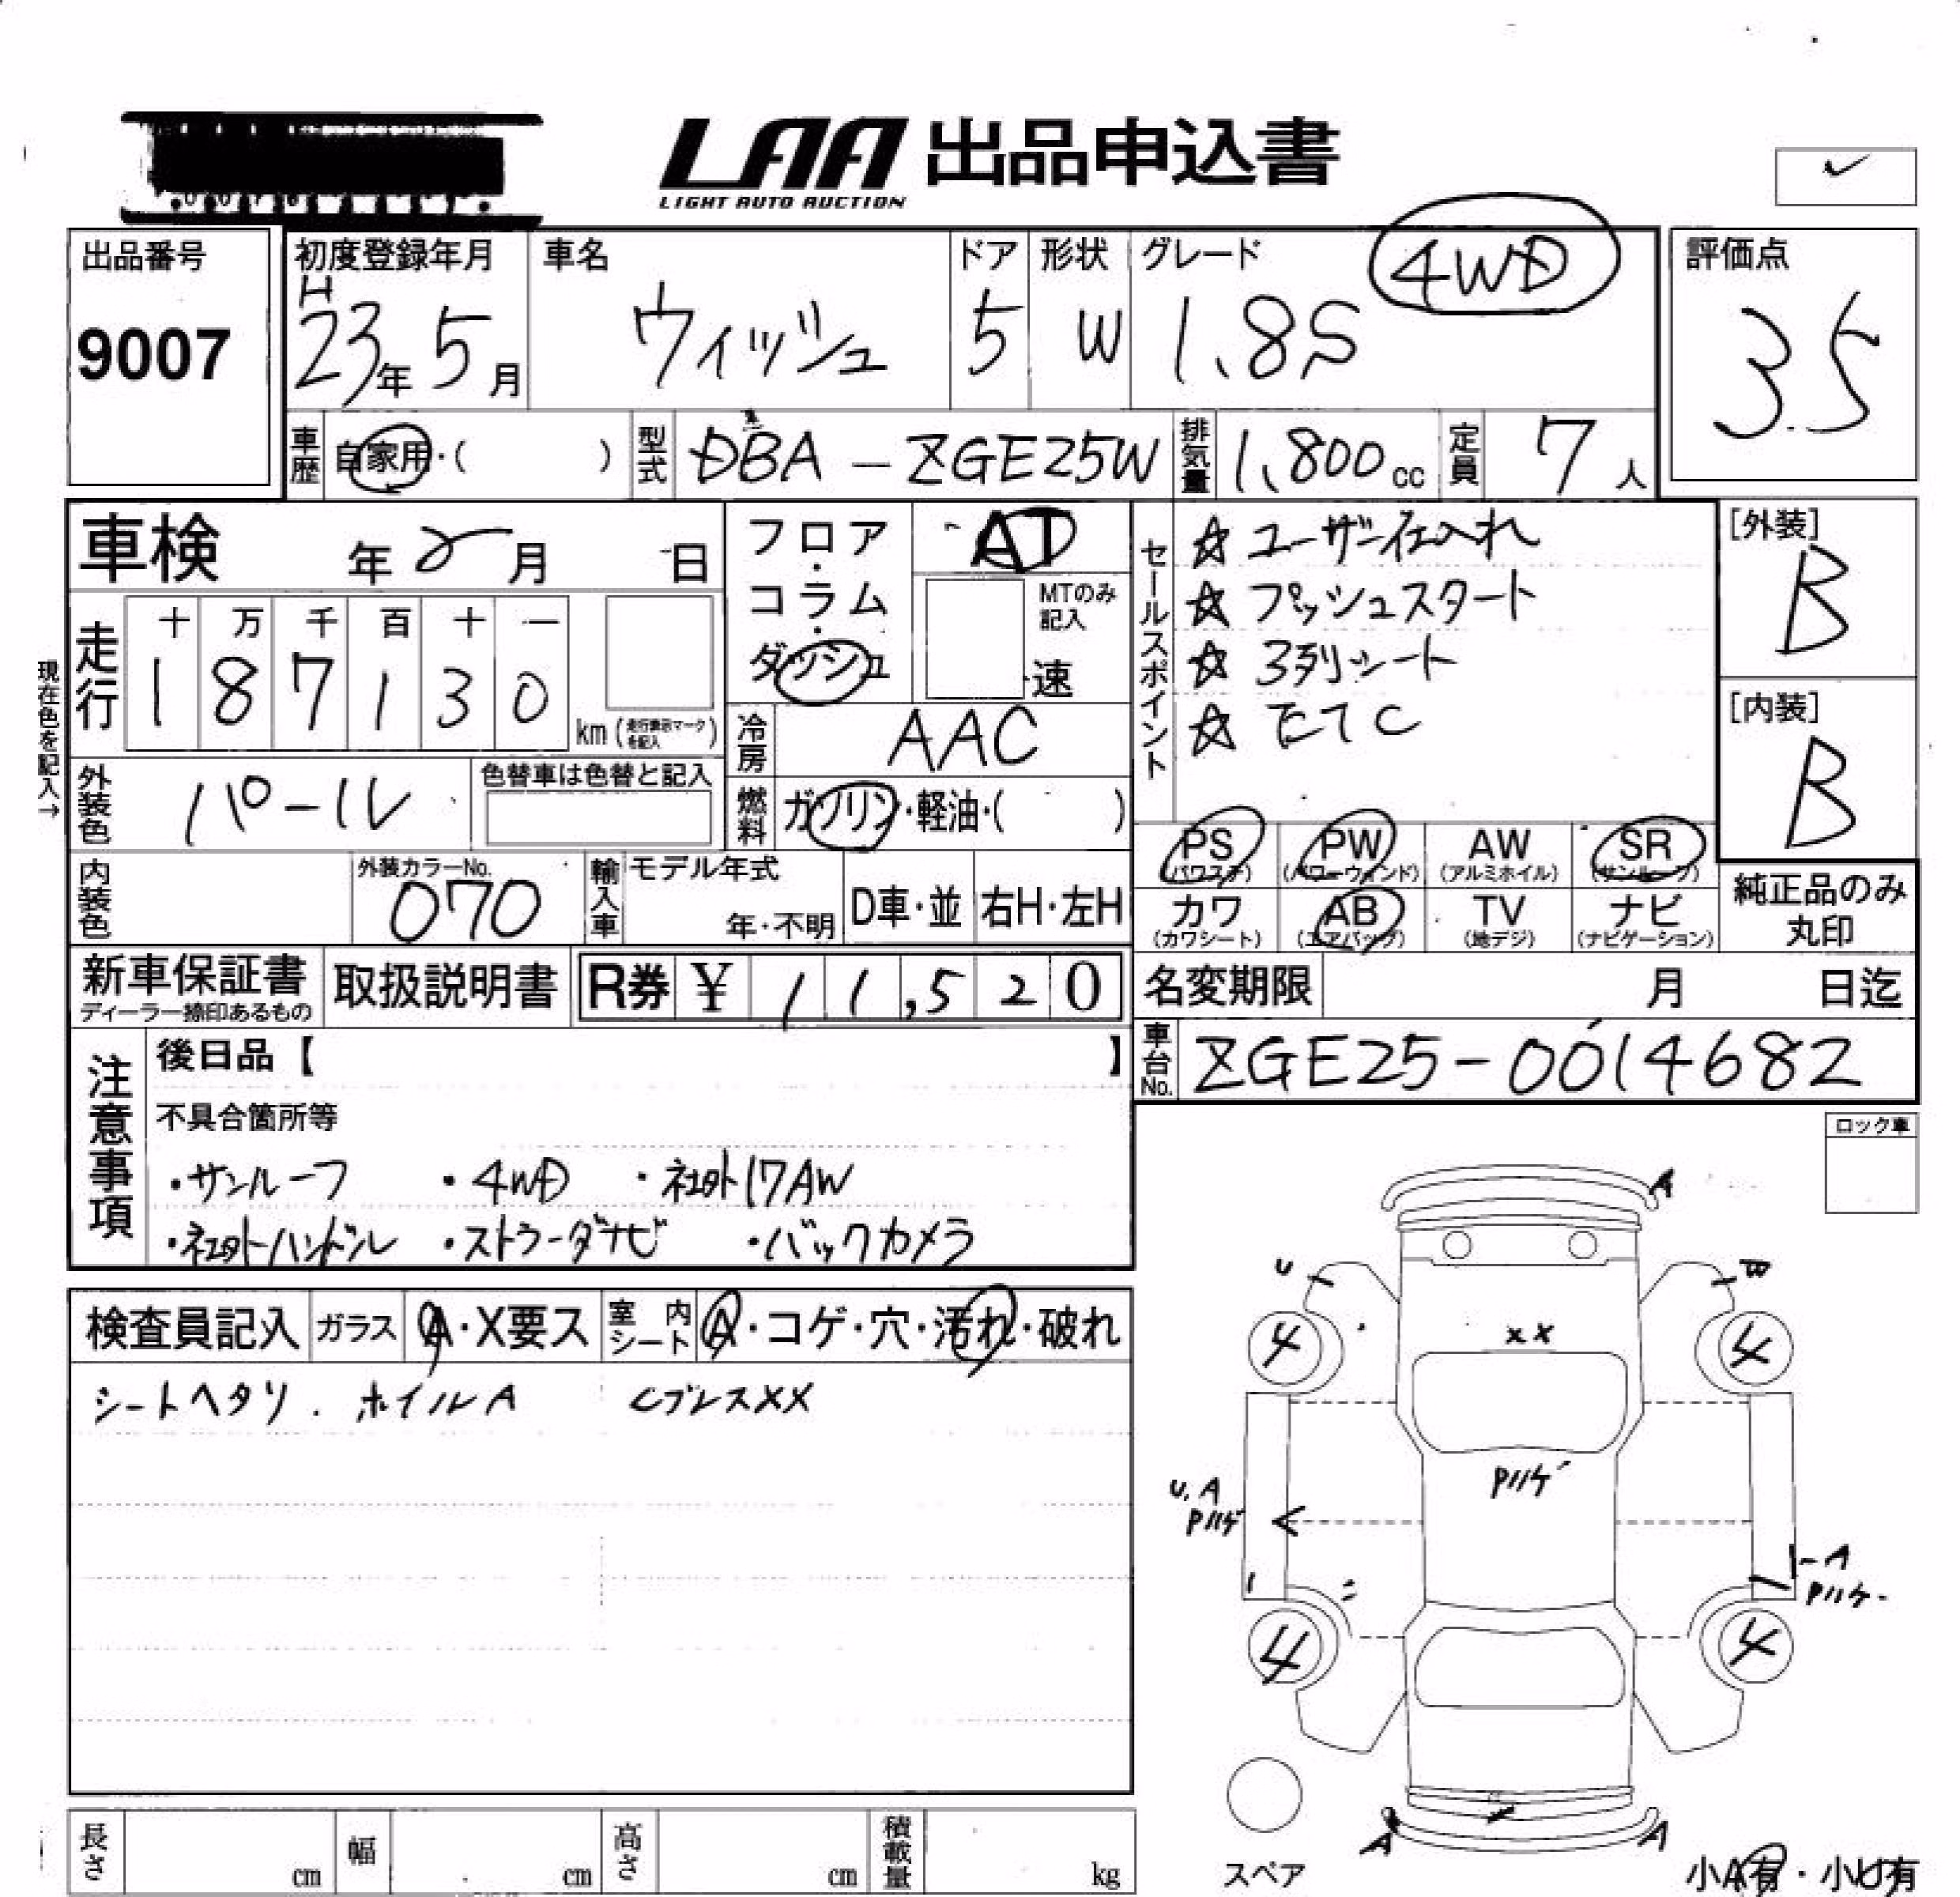 LAA 出品申込書
LIGHT AUTO AUCTION
出品番号
9007
初度登録年月
H23年5月
車名
ウィッシュ
ドア
5
形状
W
グレード
1.8S
4WD
評価点
3.5
車歴 自家用・( )
型式 DBA-ZGE25W
排気量 1,800cc
定員 7人
車検 年 月 日
フロア・コラム・ダッシュ
AT
MTのみ記入
速
現在色を記入→
走行
十 万 千 百 十 一
1 8 7 1 3 0 km (走行表示マークを記入)
冷房 AAC
外装色 パール
色替車は色替と記入
燃料 ガソリン・軽油・( )
内装色
外装カラーNo.
070
輸入車
モデル年式
年・不明
D車・並
右H・左H
セールスポイント
☆ ユーザー仕入れ
☆ プッシュスタート
☆ 3列シート
☆ ETC
[外装]
B
[内装]
B
PS (パワステ)
PW (パワーウィンド)
AW (アルミホイル)
SR (サンルーフ)
カワ (カワシート)
AB (エアバッグ)
TV (地デジ)
ナビ (ナビゲーション)
純正品のみ
丸印
新車保証書
ディーラー捺印あるもの
取扱説明書
R券 ¥ 11,520
名変期限 月 日迄
車台No. ZGE25-0014682
注意事項
後日品【 】
不具合箇所等
・サンルーフ ・4WD ・社外17AW
・社外ハンドル ・ストラーダナビ ・バックカメラ
ロック車
検査員記入
ガラス A・X要ス
室内シート A・コゲ・穴・汚れ・破れ
シートヘタリ. ホイルA CプレスXX
A
U
W
4
XX
4
Pハゲ
U.A
Pハゲ
A
Pハゲ
4
4
A
A
スペア
小A有・小U有
長さ cm
幅 cm
高さ cm
積載量 kg